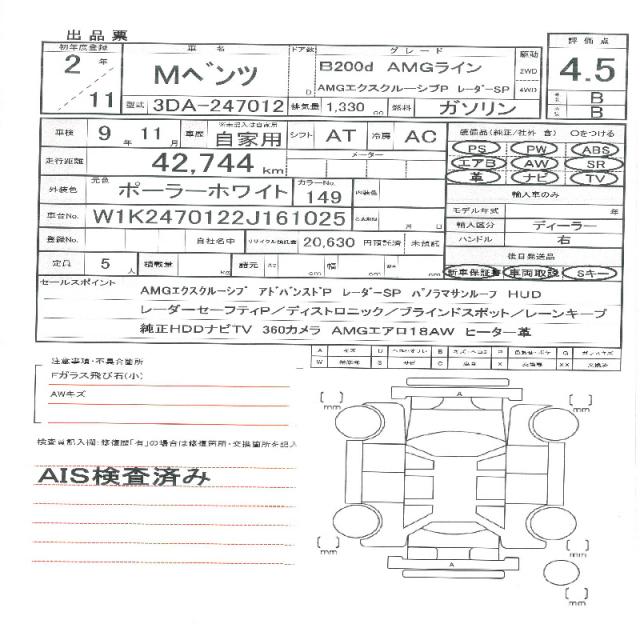 出品票
初年度登録 車名 ドア数 グレード 駆動 評価点
2 年 Mベンツ D B200d AMGライン 2WD 4.5
AMGエクスクルーシブP レーダーSP 4WD
11 型式 3DA-247012 排気量 1,330 cc 燃料 ガソリン B
B
車検 9 年 11 月 車歴 ※未記入は自家用 自家用 シフト AT 冷房 AC 装備品(純正/社外 含) Oをつける
PS PW ABS
走行距離 42,744 km メーター エアB AW SR
革 ナビ TV
外装色 元色 ポーラーホワイト カラーNo. 149 内装色 輸入車のみ
モデル年式 年
車台No. W1K2470122J161025 月 日 輸入区分 ディーラー
登録No. 自社名中 リサイクル預託金 20,630 円預託済 未預託 ハンドル 右
定員 5 人 積載量 kg 諸元 長さ cm 幅 cm 高さ cm 後日発送品
新車保証書 車両取説 Sキー
セールスポイント
AMGエクスクルーシブ アドバンストP レーダーSP パノラマサンルーフ HUD
レーダーセーフティP/ディストロニック/ブラインドスポット/レーンキープ
純正HDDナビTV 360カメラ AMGエアロ18AW ヒーター革
注意事項・不具合箇所
Fガラス飛び石(小)
AWキズ
検査員記入欄:修復歴「有」の場合は修復箇所・交換箇所を記入
AIS検査済み
A キズ U B キズ・ヘコミ P G ガラスキズ
W S サビ C X XX
A
mm
mm
A
mm
mm
mm